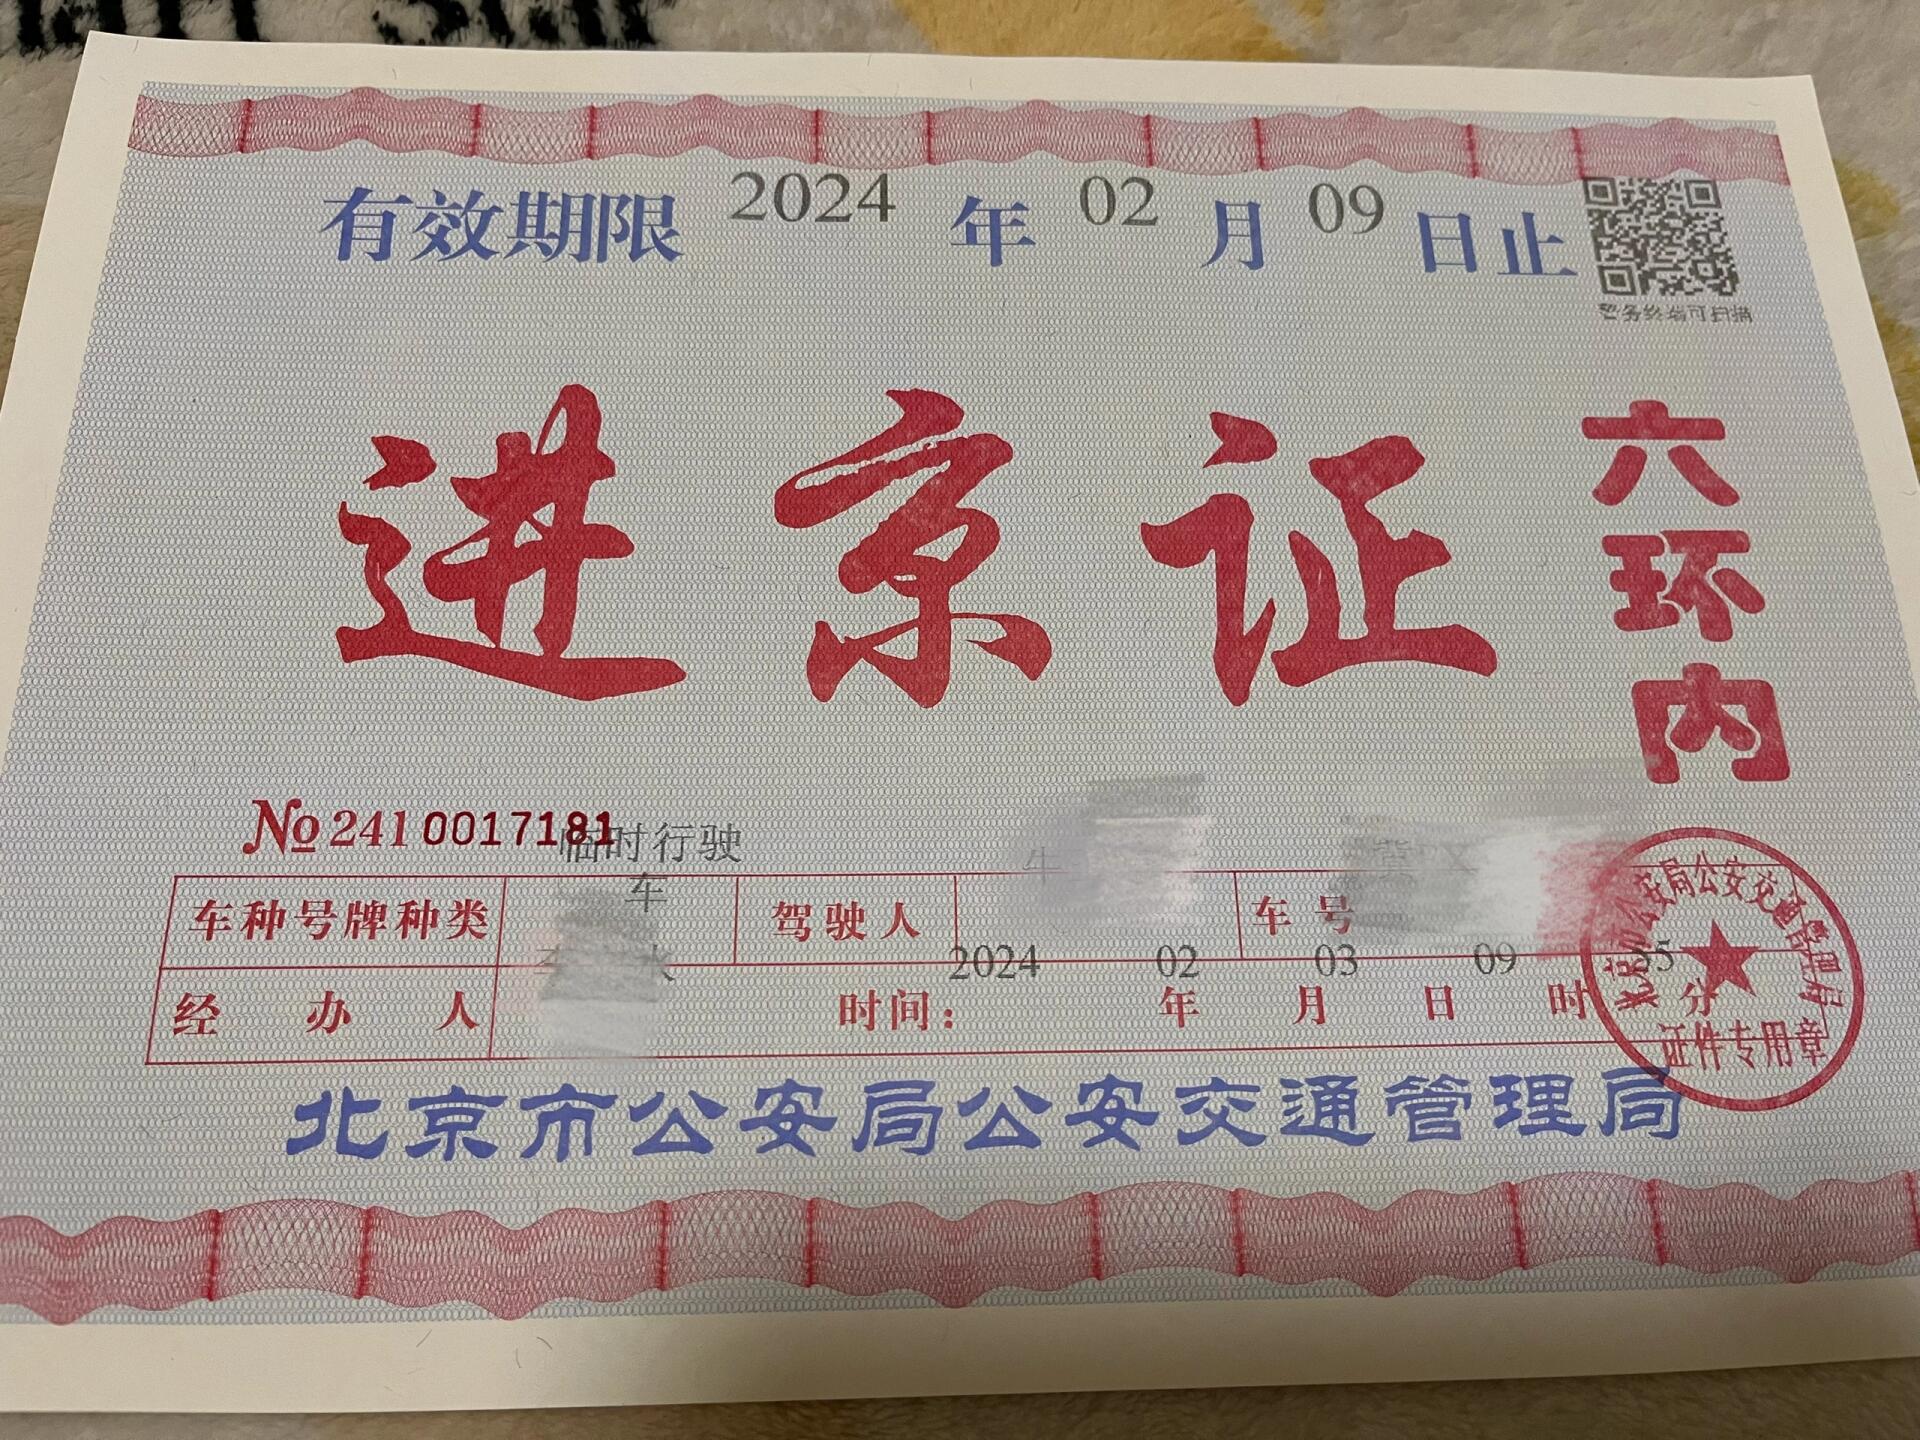 有效期限 2024 年 02 月 09 日止
警务终端可扫描
进京证
六环内
№ 241 0017181
临时行驶
车
车种号牌种类 驾驶人 车号
2024 02 03 09 55
经办人 时间： 年 月 日 时 分
北京市公安局公安交通管理局
证件专用章
北京市公安局公安交通管理局